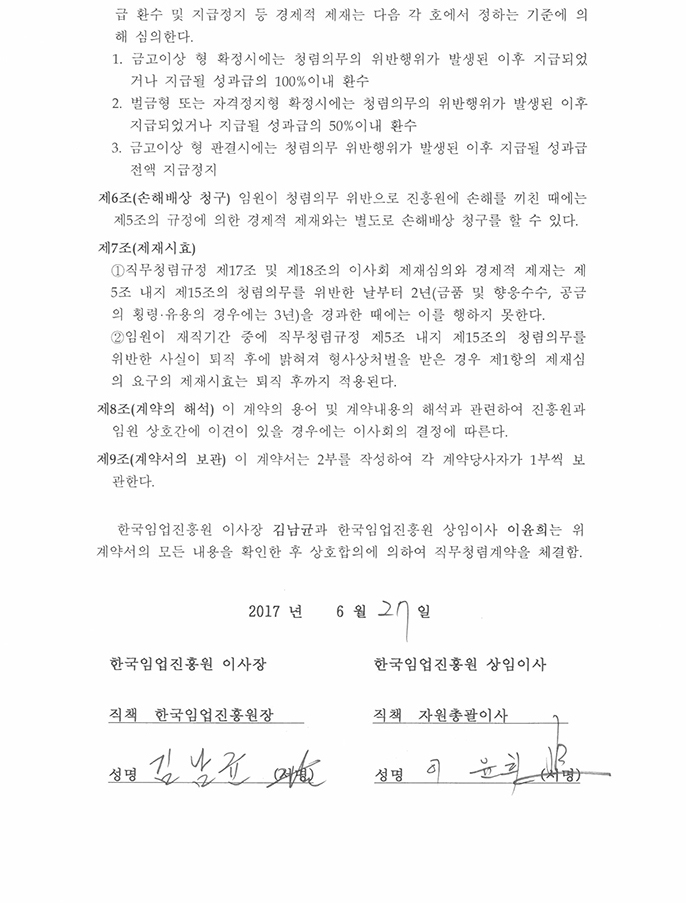 급 환수 및 지급정지 등 경제적 제재는 다음 각 호에서 정하는 기준에 의
해 심의한다.
1. 금고이상 형 확정시에는 청렴의무의 위반행위가 발생된 이후 지급되었
거나 지급될 성과급의 100%이내 환수
2. 벌금형 또는 자격정지형 확정시에는 청렴의무의 위반행위가 발생된 이후
지급되었거나 지급될 성과급의 50%이내 환수
3. 금고이상 형 판결시에는 청렴의무 위반행위가 발생된 이후 지급될 성과급
전액 지급정지
제6조(손해배상 청구) 임원이 청렴의무 위반으로 진흥원에 손해를 끼친 때에는
제5조의 규정에 의한 경제적 제재와는 별도로 손해배상 청구를 할 수 있다.
제7조(제재시효)
①직무청렴규정 제17조 및 제18조의 이사회 제재심의와 경제적 제재는 제
5조 내지 제15조의 청렴의무를 위반한 날부터 2년(금품 및 향응수수, 공금
의 횡령·유용의 경우에는 3년)을 경과한 때에는 이를 행하지 못한다.
②임원이 재직기간 중에 직무청렴규정 제5조 내지 제15조의 청렴의무를
위반한 사실이 퇴직 후에 밝혀져 형사상처벌을 받은 경우 제1항의 제재심
의 요구의 제재시효는 퇴직 후까지 적용된다.
제8조(계약의 해석) 이 계약의 용어 및 계약내용의 해석과 관련하여 진흥원과
임원 상호간에 이견이 있을 경우에는 이사회의 결정에 따른다.
제9조(계약서의 보관) 이 계약서는 2부를 작성하여 각 계약당사자가 1부씩 보
관한다.
한국임업진흥원 이사장 김남균과 한국임업진흥원 상임이사 이윤희는 위
계약서의 모든 내용을 확인한 후 상호합의에 의하여 직무청렴계약을 체결함.
2017 년 6 월 27 일
한국임업진흥원 이사장 한국임업진흥원 상임이사
직책 한국임업진흥원장 직책 자원총괄이사
성명 김남균 (서명) 성명 이윤희 (서명)